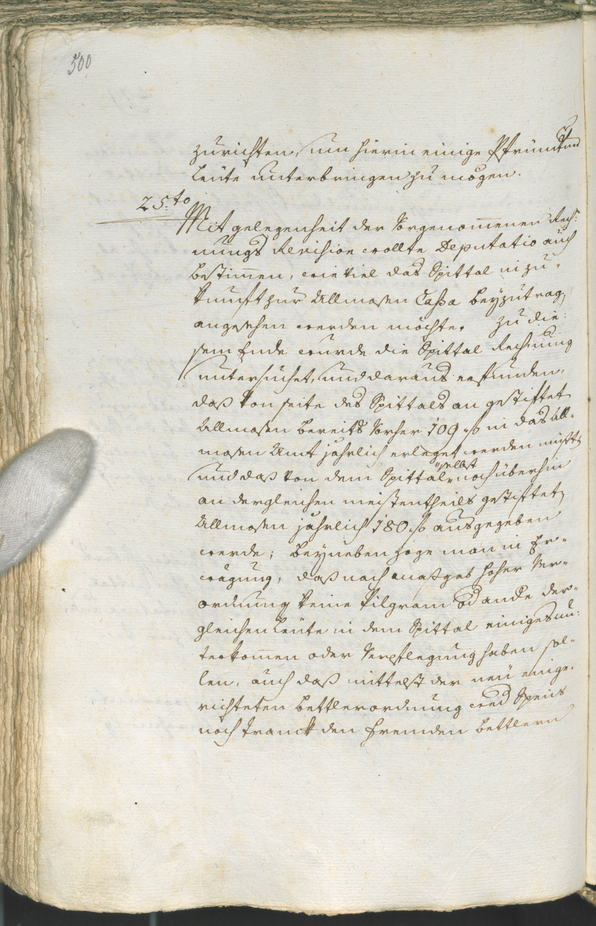 500
zurichten, um hierin einige Pfründten
Leüte unterbringen zu mögen.
25.to
Mit gelegenheit der Vorgenommenen Rech¬
nungs Revision wollte Deputatio auch
bestimmen, wie viel das Spittal in zu¬
kunfft zur Allmosen Cassa beyzutrag
angesehen werden möchte. Zu die¬
sem Ende wurde die Spittal Rechnung
untersuchet, und daraus erfunden,
daß von seite des Spittals an gestifftet
Allmosen bereits Vorher 109 f. in das All¬
mosen Amt jährlich erleget werden müsse
und daß von dem Spittal selbst noch überhin
an dergleichen meistentheils gestifftet
Allmosen jährlich 180 f. ausgegeben
werde; beyneben zoge man in Er¬
wägung, daß nach masgab hoher Ver¬
ordnung keine Pilgram od andere der¬
gleichen Leüte in dem Spittal einiges un¬
terkommen oder Verpflegung haben sol¬
len, auch daß mittelst der neü einge¬
richteten bettlerordnung wed Speis
noch Tranck den fremden bettlern